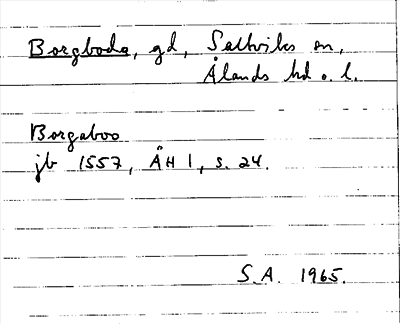 Borgboda, gd, Saltviks sn,
Ålands hd o. l.
Borgaboo
jb 1557, ÅH 1, s. 24.
S.A. 1965.